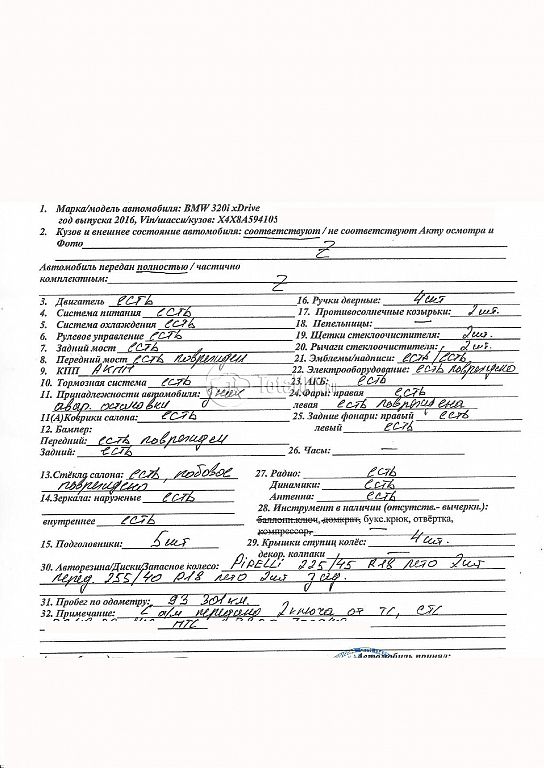 1. Марка/модель автомобиля: BMW 320i xDrive
год выпуска 2016, Vin/шасси/кузов: X4X8A594105
2. Кузов и внешнее состояние автомобиля: соответствуют / не соответствуют Акту осмотра и
Фото Z
Автомобиль передан полностью / частично
комплектным: Z
3. Двигатель есть
4. Система питания есть
5. Система охлаждения есть
6. Рулевое управление есть
7. Задний мост есть
8. Передний мост есть поврежден
9. КПП АКПП
10. Тормозная система есть
11. Принадлежности автомобиля: знак
авар. остановки
11(А)Коврики салона: есть
12. Бампер:
Передний: есть поврежден
Задний: есть
13.Стёкла салона: есть, лобовое
повреждено
14.Зеркала: наружные есть
внутреннее есть
15. Подголовники: 5 шт
16. Ручки дверные: 4 шт
17. Противосолнечные козырьки: 2 шт.
18. Пепельницы: —
19. Щетки стеклоочистителя: 2 шт.
20. Рычаги стеклоочистителя: 2 шт.
21. Эмблемы/надписи: есть/есть
22. Электрооборудование: есть повреждено
23. АКБ: есть
24.Фары: правая есть
левая есть повреждена
25. Задние фонари: правый есть
левый есть
26. Часы: —
27. Радио: есть
Динамики: есть
Антенна: есть
28. Инструмент в наличии (отсутств.- вычеркн.):
баллонн.ключ, домкрат, букс.крюк, отвёртка,
компрессор,
29. Крышки ступиц колёс: 4 шт.
декор. колпаки —
30. Авторезина/Диски/Запасное колесо: PIRELLI 225/45 R18 лето 2 шт
перед 255/40 R18 лето 2 шт зад.
31. Пробег по одометру: 93 301 км.
32. Примечание: С а/м переданы 2 ключа от ТС, СТС
ПТС
Автомобиль принял: